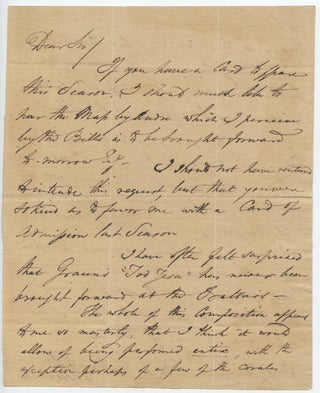 Dear Sir/
If you have a Card to spare
this Season, I should much like to
hear the Mass by André which I perceive
by the Bills is to be brought forward
to-morrow
I should not have ventured
to intrude this request, but that you were
so kind as to favor me with a Card of
Admission last Season
I have often felt surprised
that Graun's "Tod Jesu" has never been
brought forward at the Oratorios —
The whole of this Composition appears
to me so masterly, that I think it would
allow of being performed entire, with the
exception perhaps of a few of the corales